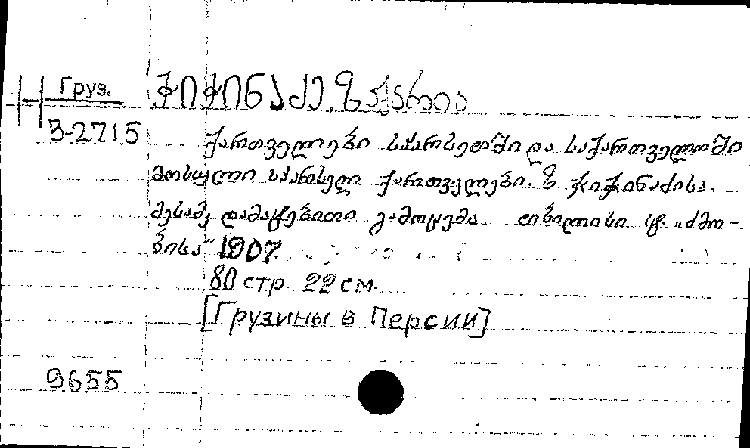 Груз.
ჭიჭინაძე. ზაქარია
3-2715
ქართველები სპარსეთში და საქართველოში
მოსული სპარსელი ქართველები. ზ. ჭიჭინაძისა.
მესამე დამატებითი გამოცემა თბილისი ტ. „ძმო-
ბისა" 1907.
80 стр. 22 см.
[Грузины в Персии]
9655